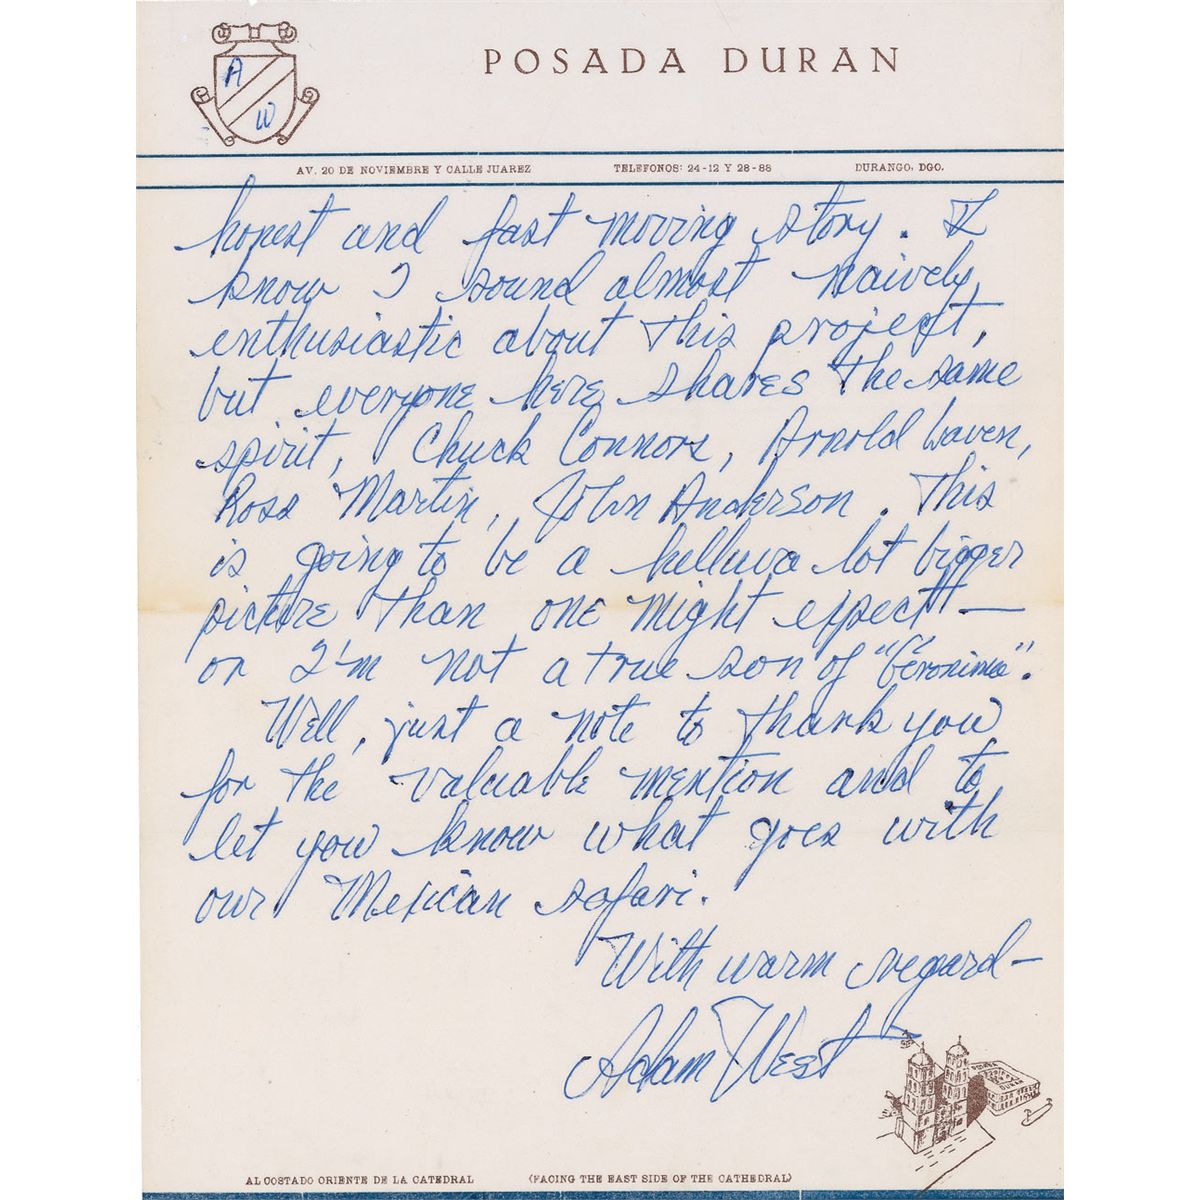 A
W
POSADA DURAN
AV. 20 DE NOVIEMBRE Y CALLE JUAREZ TELEFONOS: 24-12 Y 28-88 DURANGO, DGO.
honest and fast moving story. I
know I sound almost naively
enthusiastic about this project,
but everyone here shares the same
spirit, Chuck Connors, Arnold Laven,
Ross Martin, John Anderson. This
is going to be a helluva lot bigger
picture than one might expect —
or I'm not a true son of "Geronimo".
Well, just a note to thank you
for the valuable mention and to
let you know what goes with
our Mexican safari.
With warm regard —
Adam West
POSADA DURAN
AL COSTADO ORIENTE DE LA CATEDRAL (FACING THE EAST SIDE OF THE CATHEDRAL)